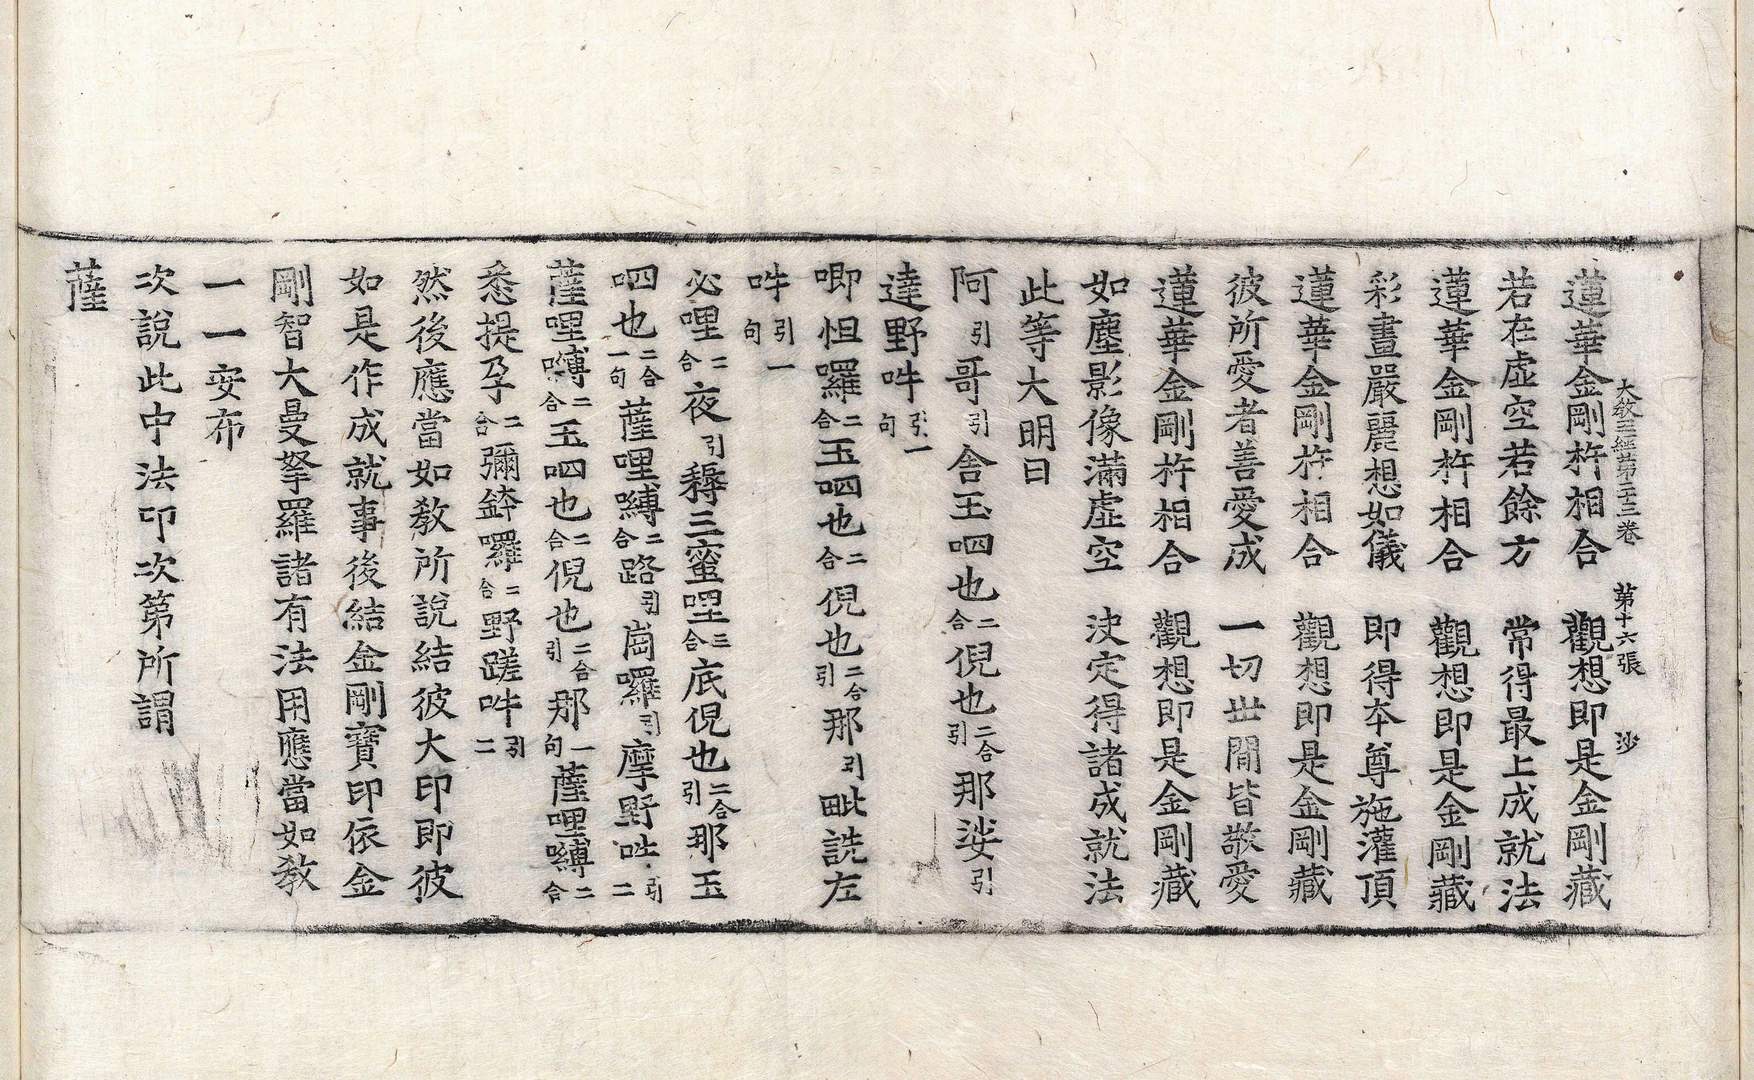 大教王經第二十三卷　第十六張　沙
蓮華金剛杵相合　觀想即是金剛藏
若在虛空若餘方　常得最上成就法
蓮華金剛杵相合　觀想即是金剛藏
彩畫嚴麗想如儀　即得本尊施灌頂
蓮華金剛杵相合　觀想即是金剛藏
彼所愛者善愛成　一切世間皆敬愛
蓮華金剛杵相合　觀想即是金剛藏
如塵影像滿虛空　決定得諸成就法
此等大明曰
阿引哥引舍玉呬也二合倪也二合引那娑引
達野吽引一句
唧怛囉二合玉呬也二合倪也二合引那引毗詵左
吽引一句
必哩二合夜引耨三蜜哩三合底倪也二合引那玉
呬也二合一句薩哩嚩二合路引崗囉引摩野吽引二
薩哩嚩二合玉呬也二合倪也二合引那一句薩哩嚩二合
悉提孕二合彌鉢囉二合野蹉吽引二
然後應當如教所說結彼大印即彼
如是作成就事後結金剛寶印依金
剛智大曼拏羅諸有法用應當如教
一一安布
次說此中法印次第所謂
薩